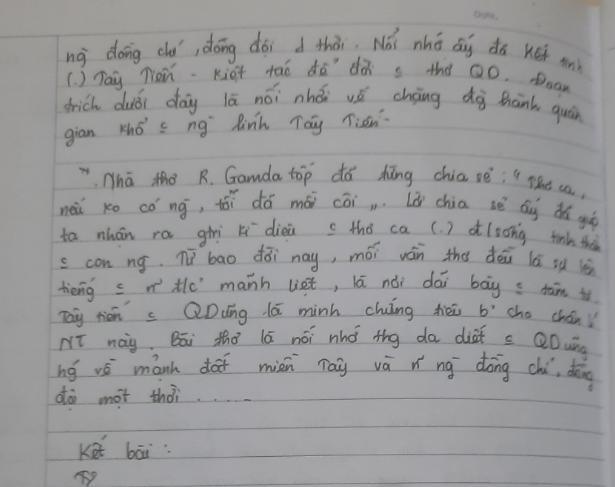 ng đồng chí, đồng đội 1 thời. Nỗi nhớ ấy đã kết tinh
(.) Tây Tiến - kiệt tác để đời c thơ QD. Đoạn
trích dưới đây là nỗi nhớ về chặng đg hành quân
gian khổ c ng lính Tây Tiến.
Nhà thơ R. Gamdatốp đã từng chia sẻ: "Thơ ca,
nếu ko có ng, tôi đã mồ côi". Lời chia sẻ ấy đã giúp
ta nhận ra gtrị kì diệu c thơ ca (.) đ/sống tinh thần
c con ng. Từ bao đời nay, mỗi vần thơ đều là sự lên
tiếng c n t/c mãnh liệt, là nơi dãi bày c tâm tư
Tây Tiến c QDũng là minh chứng tiêu b' cho chân lí
NT này. Bài thơ là nỗi nhớ thg da diết c QDũng
hg về mảnh đất miền Tây và n ng đồng chí, đồng
đội một thời ......
Kết bài: